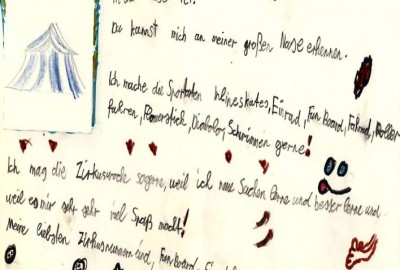 Du kannst mich an meiner großen Nase erkennen.
Ich mache die Sportarten Inlineskates, Einrad, Fun Board, Fahrrad, Roller
fahren, Flowerstick, Diabolo, Schwimmen gerne!
Ich mag die Zirkuswoche so gerne, weil ich neue Sachen lerne und besser lerne und
weil es mir sehr sehr viel Spaß macht!
Meine liebsten Zirkusnummern sind, Fun Board,